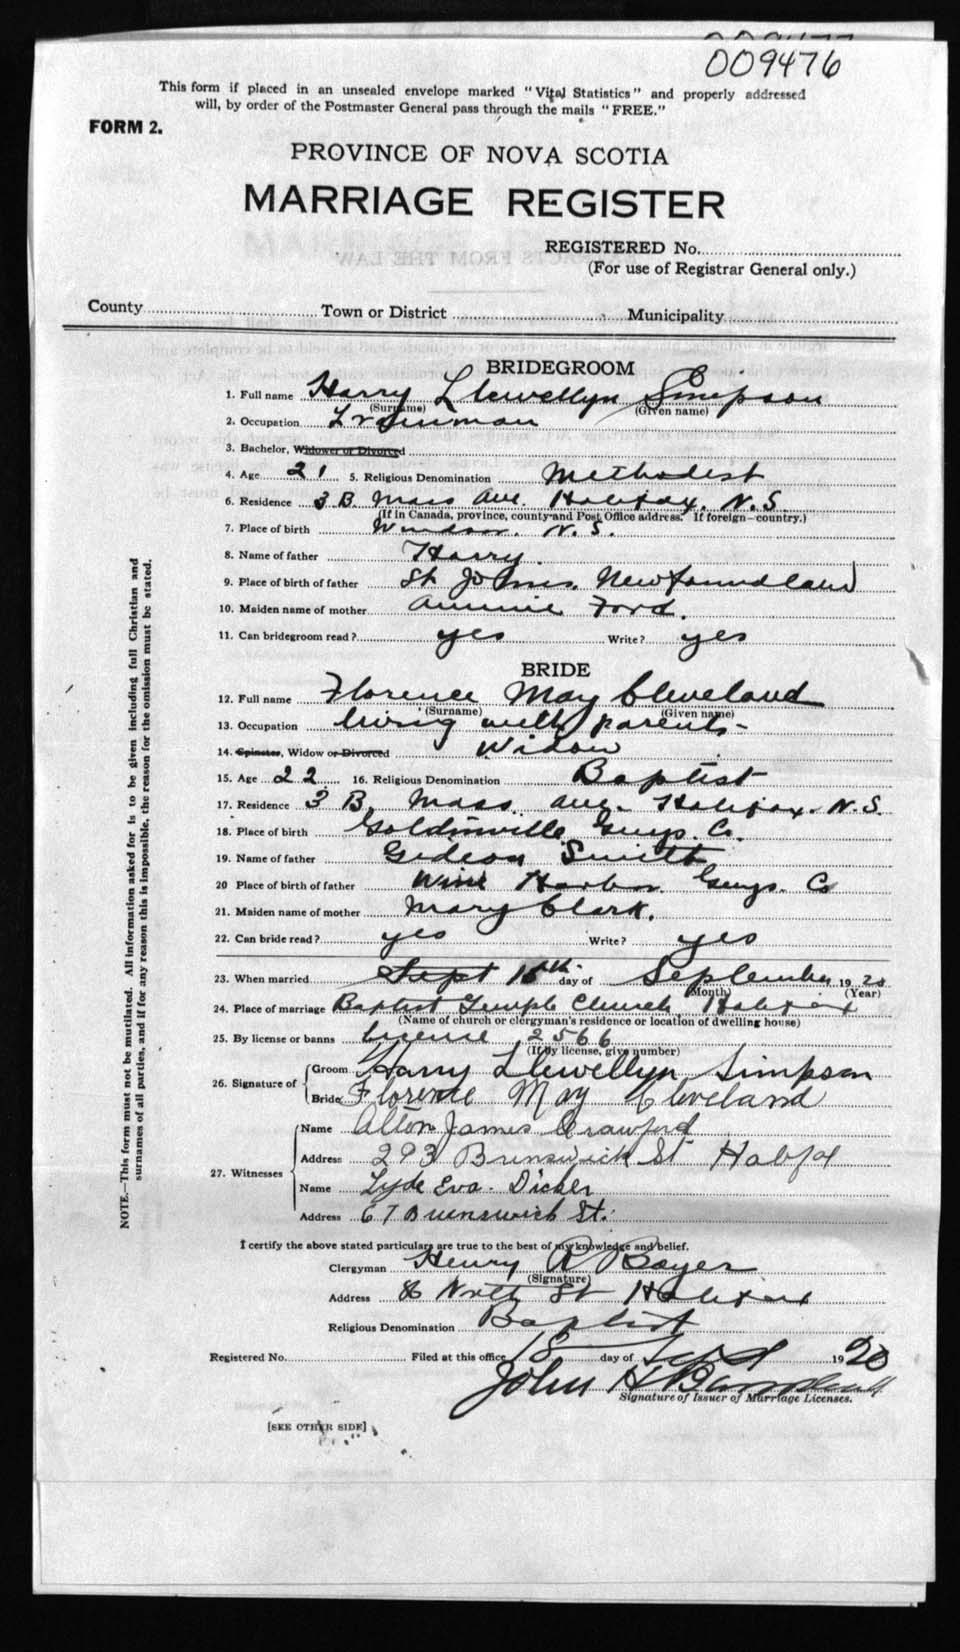 009476
This form if placed in an unsealed envelope marked "Vital Statistics" and properly addressed
will, by order of the Postmaster General pass through the mails "FREE."
FORM 2.
PROVINCE OF NOVA SCOTIA
MARRIAGE REGISTER
REGISTERED No.
(For use of Registrar General only.)
County Town or District Municipality
BRIDEGROOM
1. Full name Harry Llewellyn Simpson
(Surname) (Given name)
2. Occupation
3. Bachelor, Widower or Divorced
4. Age 21 5. Religious Denomination Methodist
6. Residence 3 B. Mass Ave. Halifax. N.S.
(If in Canada, province, county and Post Office address. If foreign—country.)
7. Place of birth Windsor. N.S.
8. Name of father Harry.
9. Place of birth of father St Johns. Newfoundland
10. Maiden name of mother Annie Ford.
11. Can bridegroom read? yes Write? yes
BRIDE
12. Full name Florence May Cleveland
(Surname) (Given name)
13. Occupation living with parents-
14. Spinster, Widow or Divorced Widow
15. Age 22 16. Religious Denomination Baptist
17. Residence 3 B. Mass. Ave. Halifax. N.S.
18. Place of birth Goldinville Guys. Co.
19. Name of father Gideon Smith
20 Place of birth of father Wine Harbor Guys. Co
21. Maiden name of mother Mary Clark.
22. Can bride read? yes Write? yes
23. When married Sept 15th day of September 1920
(Month) (Year)
24. Place of marriage Baptist Temple Church Halifax
(Name of church or clergyman's residence or location of dwelling house)
25. By license or banns license 2566
(If by license, give number)
26. Signature of Groom Harry Llewellyn Simpson
Bride Florence May Cleveland
27. Witnesses
Name Alton James Crawford
Address 293 Brunswick St Halifax
Name Eva
Address 67 Brunswick St.
I certify the above stated particulars are true to the best of my knowledge and belief.
Clergyman Henry R Boyer
(Signature)
Address 8 North St Halifax
Religious Denomination Baptist
Registered No. Filed at this office 18 day of Sept 1920
John H
Signature of Issuer of Marriage Licenses.
[SEE OTHER SIDE]
NOTE.—This form must not be mutilated. All information asked for is to be given including full Christian and
surnames of all parties, and if for any reason this is impossible, the reason for the omission must be stated.